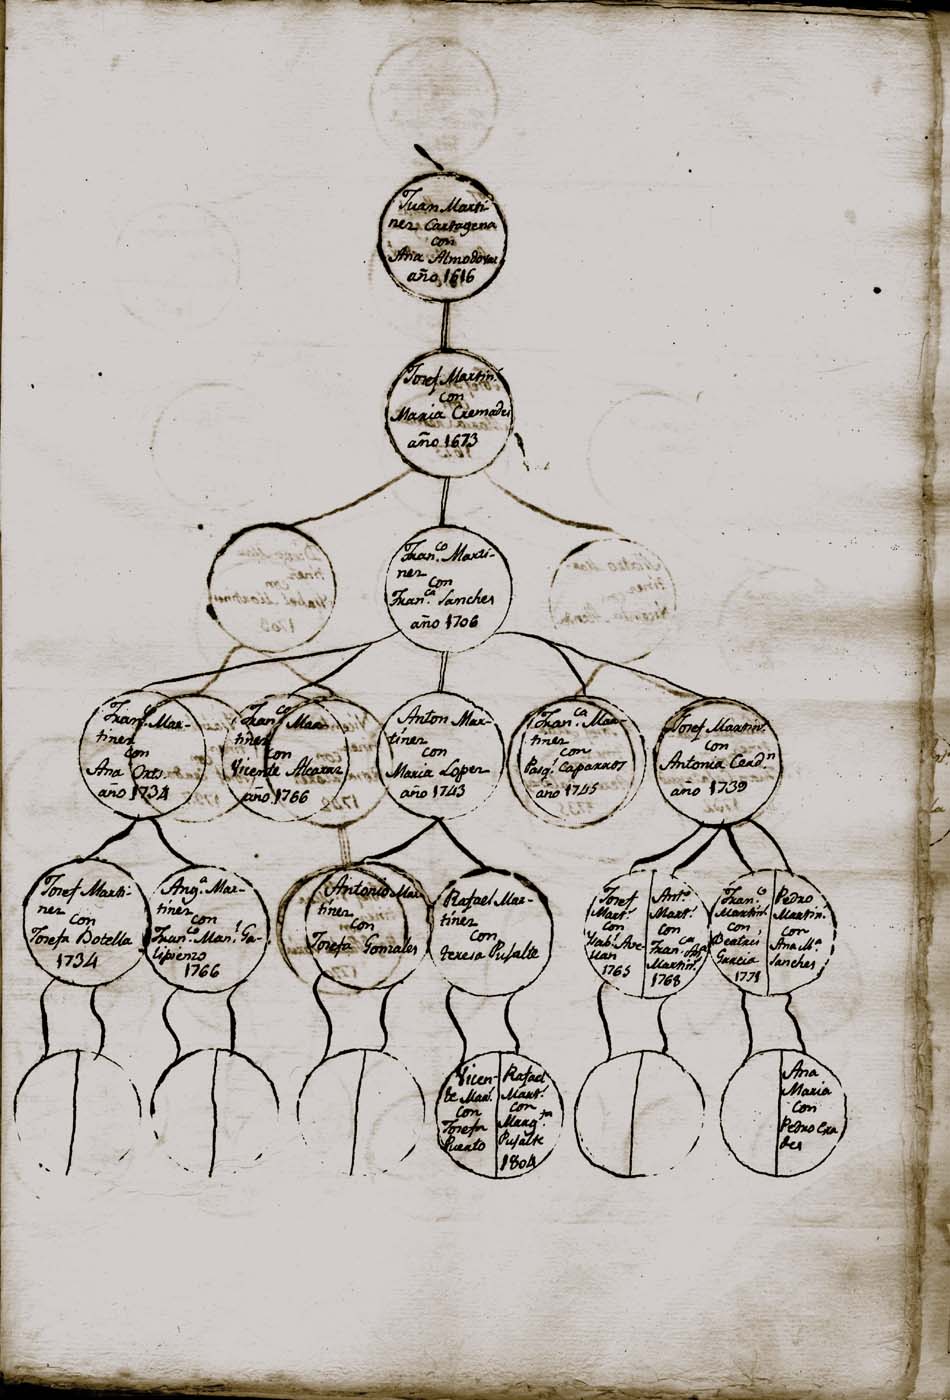 Juan Marti-
nez Cartagena
con
Ana Almodovar
año 1616
Josef Martin.
con
Maria Cremades
año 1673
Fran.co Marti-
nez
con
Fran.ca Sanches
año 1706
Fran.co Mar-
tinez
con
Ana Orts.
año 1734
Fran.ca Mar-
tinez
con
Vicente Alcaraz
año 1766
Anton Mar-
tinez
con
Maria Lopez
año 1743
Fran.ca Mar-
tinez
con
Pasq.l Caparros
año 1745
Josef Martin.
con
Antonia Cerd.n
año 1739
Josef Marti-
nez
con
Josefa Botella
1734
Ang.a Mar-
tinez
con
Fran.co Man.l Ga-
lipienzo
1766
Antonio Mar
tinez
con
Josefa Gonzales
Rafael Mar-
tinez
con
teresa Pujalte
Josef
Mart.
con
1765
Ant.o
Mart.
con
Fran.ca
Martin.
1768
Fran.co
Martin.
con
Beatris
Garcia
1771
Pedro
Martin.
con
Ana M.a
Sanches
Vicen-
te Mar.
con
Josefa
Puerto
Rafael
Mart.
con
Marg.ta
Pujalte
1804
Ana
Maria
con
Pedro